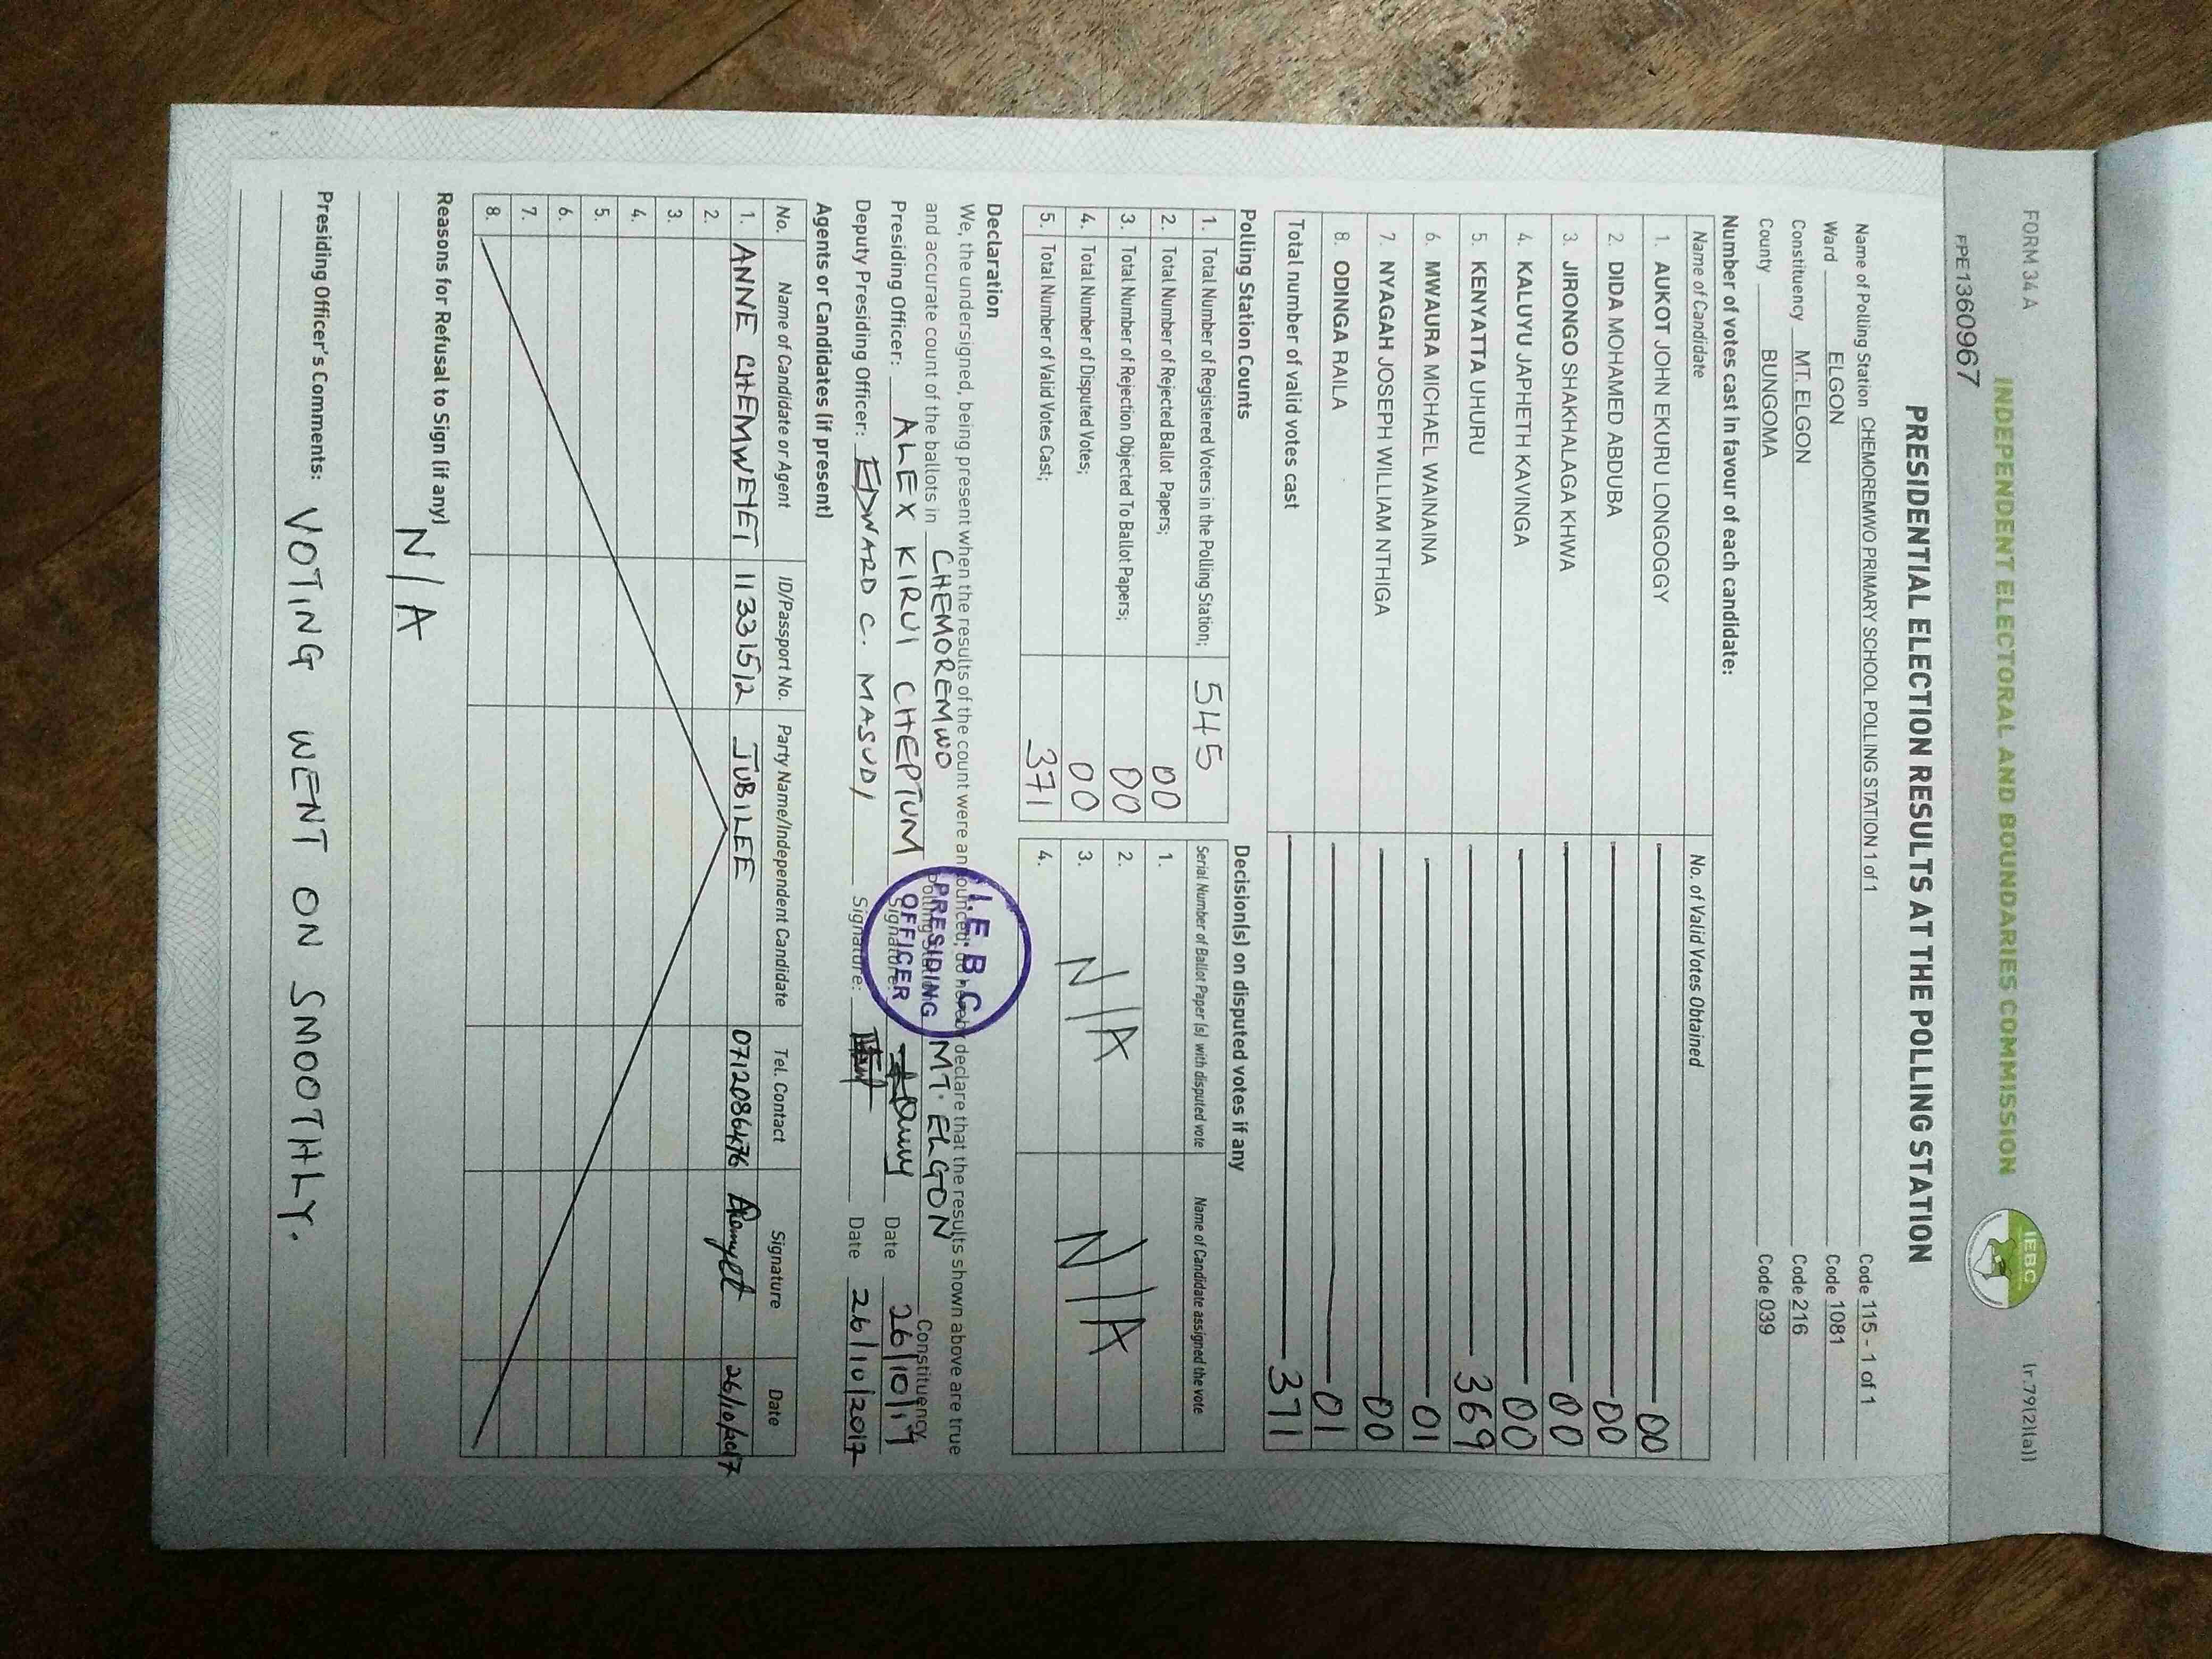 FORM 34 A
(r.79(2)(a))
INDEPENDENT ELECTORAL AND BOUNDARIES COMMISSION
IEBC
PPE1360967
PRESIDENTIAL ELECTION RESULTS AT THE POLLING STATION
Name of Polling Station CHEMOREMWO PRIMARY SCHOOL POLLING STATION 1 of 1 Code 115 - 1 of 1
Ward ELGON Code 1081
Constituency MT. ELGON Code 216
County BUNGOMA Code 039
Number of votes cast in favour of each candidate:
Name of Candidate No. of Valid Votes Obtained
1. AUKOT JOHN EKURU LONGOGGY 00
2. DIDA MOHAMED ABDUBA 00
3. JIRONGO SHAKHALAGA KHWA 00
4. KALUYU JAPHETH KAVINGA 00
5. KENYATTA UHURU 369
6. MWAURA MICHAEL WAINAINA 01
7. NYAGAH JOSEPH WILLIAM NTHIGA 00
8. ODINGA RAILA 01
Total number of valid votes cast 371
Polling Station Counts
1. Total Number of Registered Voters in the Polling Station; 545
2. Total Number of Rejected Ballot Papers; 00
3. Total Number of Rejection Objected To Ballot Papers; 00
4. Total Number of Disputed Votes; 00
5. Total Number of Valid Votes Cast; 371
Decision(s) on disputed votes if any
Serial Number of Ballot Paper (s) with disputed vote Name of Candidate assigned the vote
1.
2.
3. N/A N/A
4.
Declaration
We, the undersigned, being present when the results of the count were announced, do hereby declare that the results shown above are true
and accurate count of the ballots in CHEMOREMWO Polling Station MT. ELGON Constituency
Presiding Officer: ALEX KIRUI CHEPTUM Signature: Date 26/10/17
Deputy Presiding Officer: EDWARD C. MASUDI Signature: Date 26/10/2017
I.E.B.C
PRESIDING
OFFICER
Agents or Candidates (if present)
No. Name of Candidate or Agent ID/Passport No. Party Name/Independent Candidate Tel. Contact Signature Date
1. ANNE CHEMWEYET 11331512 JUBILEE 0712086476 26/10/2017
2.
3.
4.
5.
6.
7.
8.
Reasons for Refusal to Sign (if any)
N/A
Presiding Officer's Comments: VOTING WENT ON SMOOTHLY.